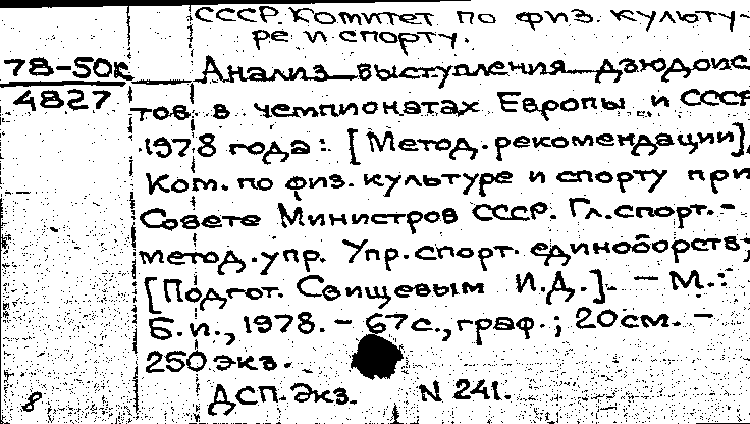 СССР. Комитет по физ. культу-
ре и спорту.
78-50к
4827
Анализ выступления дзюдоис
тов в чемпионатах Европы и СССР
1978 года: [Метод. рекомендации]
Ком. по физ. культуре и спорту при
Совете Министров СССР. Гл. спорт.-
метод. упр. Упр. спорт. единоборств;
[Подгот. Свищевым И.Д.]. - М.:
Б. и., 1978. - 67 с., граф.; 20 см. -
250 экз.
ДСП. Экз. N 241.
8